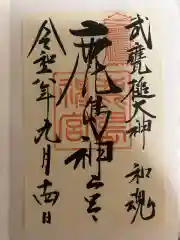 武甕槌大神 和魂
鹿島神宮
令和年九月十四日